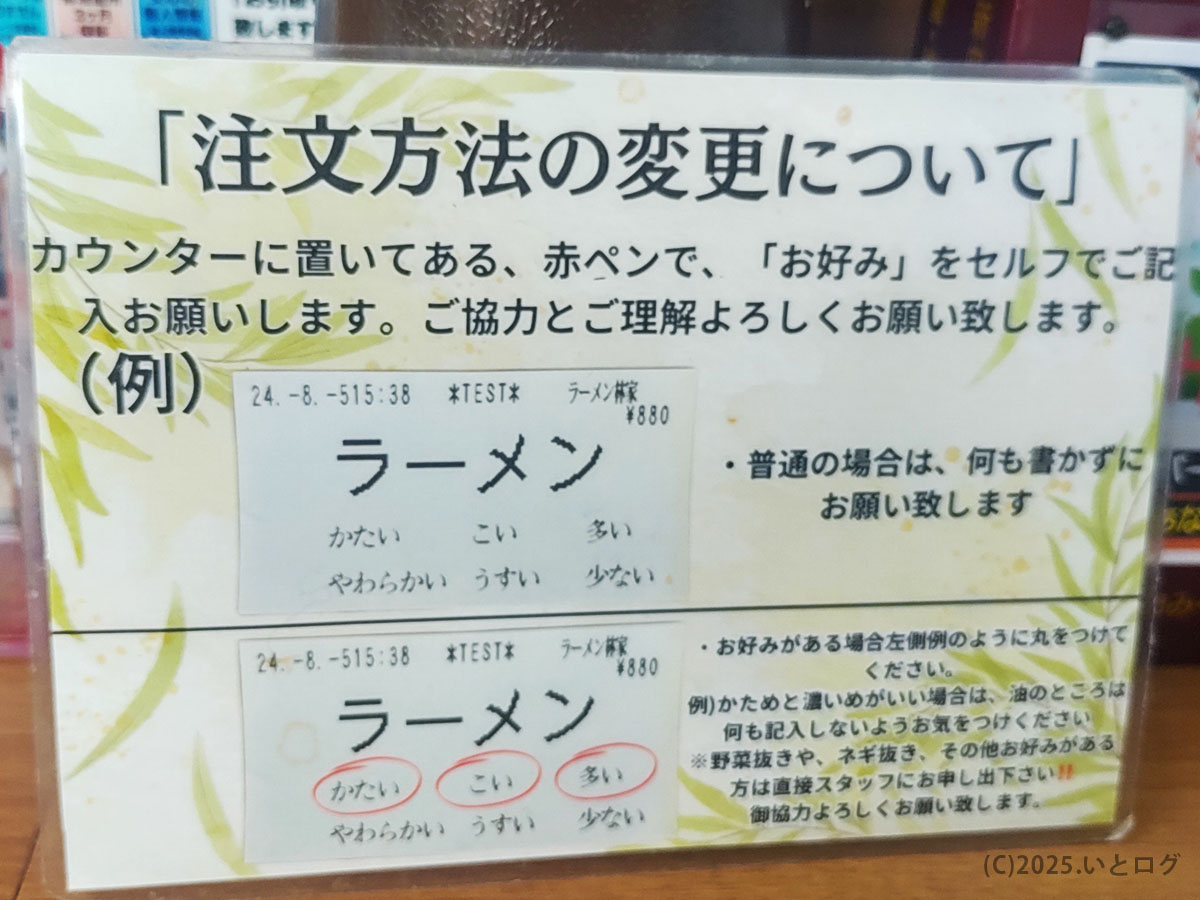 「注文方法の変更について」
カウンターに置いてある、赤ペンで、「お好み」をセルフでご記
入お願いします。ご協力とご理解よろしくお願い致します。
（例）
24.-8.-515:38 *TEST* ラーメン林家
¥880
ラーメン
かたい こい 多い
やわらかい うすい 少ない
・普通の場合は、何も書かずに
お願い致します
24.-8.-515:38 *TEST* ラーメン林家
¥880
ラーメン
かたい こい 多い
やわらかい うすい 少ない
・お好みがある場合左側例のように丸をつけて
ください。
例)かためと濃いめがいい場合は、油のところは
何も記入しないようお気をつけください
※野菜抜きや、ネギ抜き、その他お好みがある
方は直接スタッフにお申し出下さい‼
御協力よろしくお願い致します。
(C)2025.いとログ